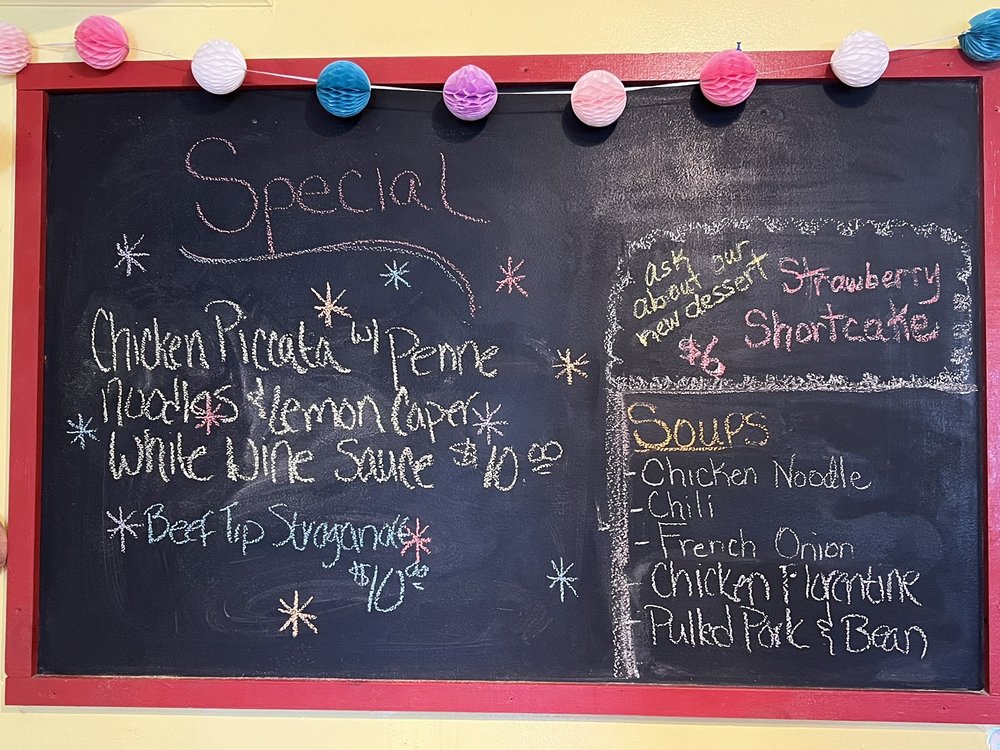 Special
Chicken Piccata w/ Penne
Noodles & Lemon Caper
White Wine Sauce $10.00
Beef Tip Stroganoff
$10.00
ask
about our
new dessert
Strawberry
Shortcake
$6
Soups
- Chicken Noodle
- Chili
- French Onion
- Chicken Florentine
- Pulled Pork & Bean